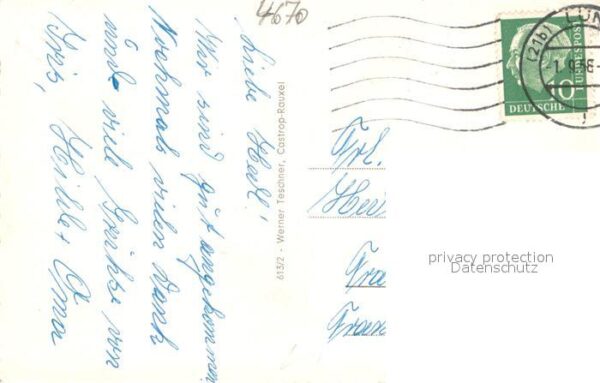 4670
Liebe Hedl!
Wir sind gut angekommen
Nochmals vielen Dank
und viele Grüße von
Iris, Hilde + Oma
613/2 - Werner Teschner, Castrop-Rauxel
Frl.
(21b) LÜN
10
BUNDESPOST
DEUTSCHE
privacy protection
Datenschutz